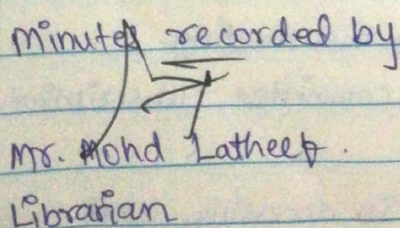 Minutes recorded by
Mr. Mohd Latheef.
Librarian